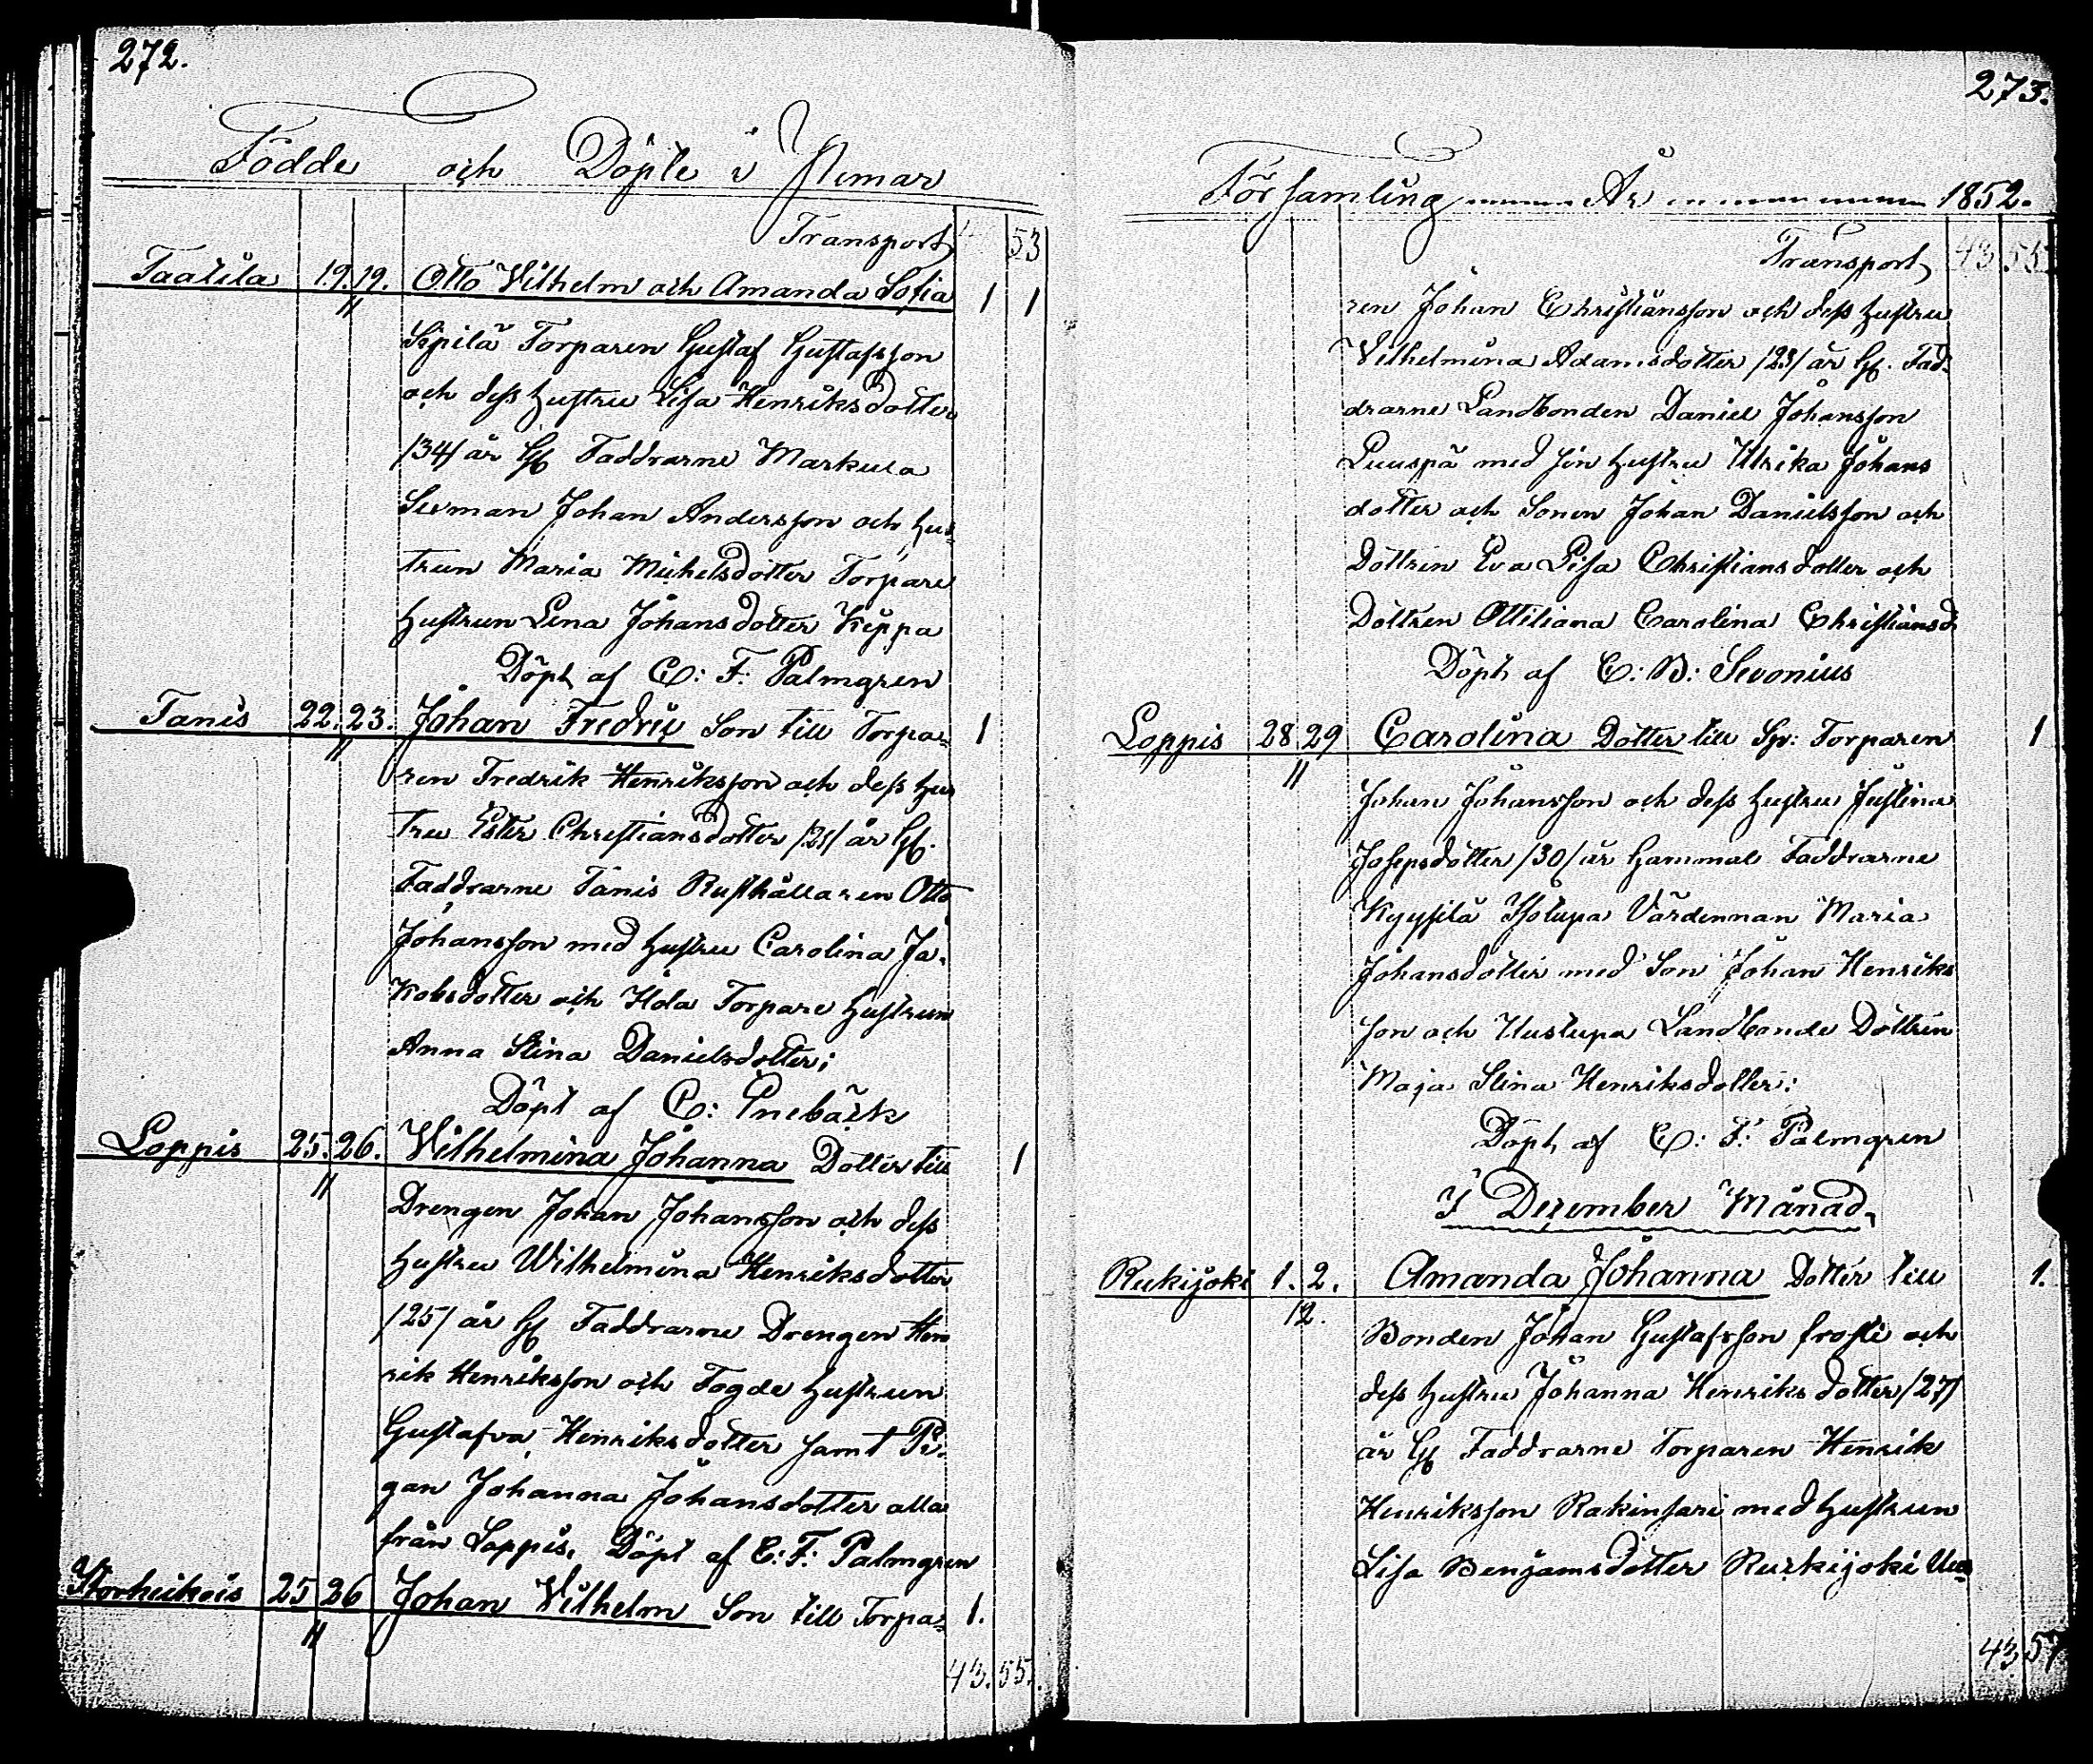 272.
Födde och Döpte i Nemar
Transport 53
Taatila 19. 19. Otto Vilhelm och Amanda Sofia 1 1
11
Sipilä Torparen Gustaf Gustafsson
och dess hustru Lisa Henriksdotter
/34/ år Gl Faddrarne Markula
Sexman Johan Andersson och hus-
trun Maria Michelsdotter Torpare
hustrun Lena Johansdotter Keppa
Döpt af C: F: Palmgren
Tanis 22. 23. Johan Fredric Son till Torpa- 1
11
ren Fredrik Henriksson och dess hus
tru Ester Christiansdotter /21/ år Gl.
Faddrarne Tanis Rusthållaren Otto
Johansson med hustru Carolina Ja-
kobsdotter och Torpare hustrun
Anna Stina Danielsdotter;
Döpt af C:
Loppis 25. 26. Vilhelmina Johanna Dotter till 1
11
Drengen Johan Johansson och dess
hustru Wilhelmina Henriksdotter
/25/ år Gl Faddrarne Drengen Hen
rik Henriksson och Fogde hustrun
Gustafva Henriksdotter samt Pi-
gan Johanna Johansdotter alla
från Loppis. Döpt af C: F: Palmgren
Storheikois 25 26 Johan Vilhelm Son till Torpa- 1.
11
43. 55.
273.
Församling År 1852.
Transport 43 55
ren Johan Christiansson och dess hustru
Vilhelmina Adamsdotter /23/ år Gl. Fad-
drarne Landbonden Daniel Johansson
Puuspä med sin hustru Ulrika Johans
dotter och Sonen Johan Danielsson och
Dottren Eva Lisa Christiansdotter och
Dottren Ottiliana Carolina Christiansd
Döpt af C: B: Sevonius
Loppis 28 29 Carolina Dotter till Sp: Torparen 1
11
Johan Johansson och dess hustru Justina
Josepsdotter /30/ år Gammal Faddrarne
Kyysilä Värdennan Maria
Johansdotter med Son Johan Henriks
son och Uustupa Landbonde Dottren
Maja Stina Henriksdotter:
Döpt af C: F: Palmgren
I Dezember Månad,
Rukijoki 1. 2. Amanda Johanna Dotter till 1.
12.
Bonden Johan Gustafsson frosti och
dess hustru Johanna Henriks dotter /27/
år Gl Faddrarne Torparen Henrik
Henriksson Rakinsari med hustrun
Lisa Benjamsdotter Ruckijoki
43 57